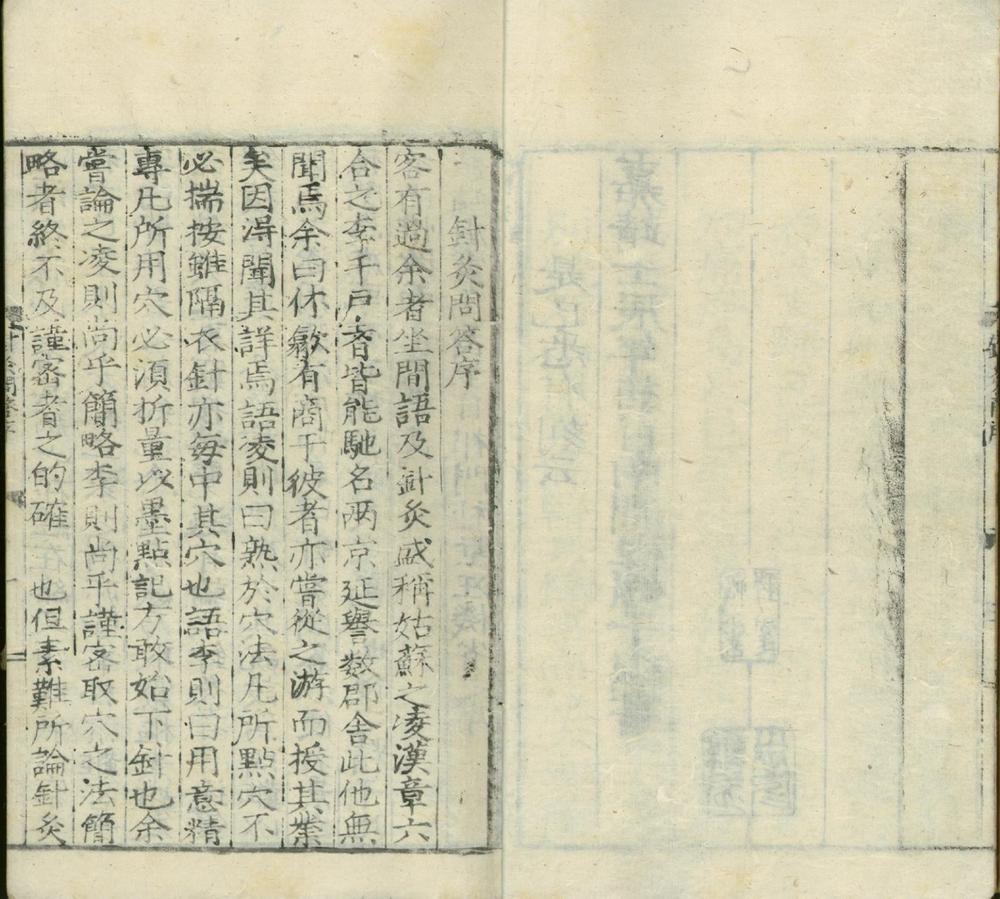 針灸問答序
客有過余者坐間語及針灸盛稱姑蘇之凌漢章六
合之李千戶者皆能馳名兩京延譽数郡舍此他無
聞焉余曰休歙有商于彼者亦嘗從之游而授其業
矣因淂聞其詳焉語凌則曰熟於穴法凡所點穴不
必揣按雖隔衣針亦每中其穴也語李則曰用意精
專凡所用穴必須折量以墨點記方敢始下針也余
嘗論之凌則尚乎簡略李則尚乎謹密取穴之法簡
略者終不及謹密者之的確也但素難所論針灸